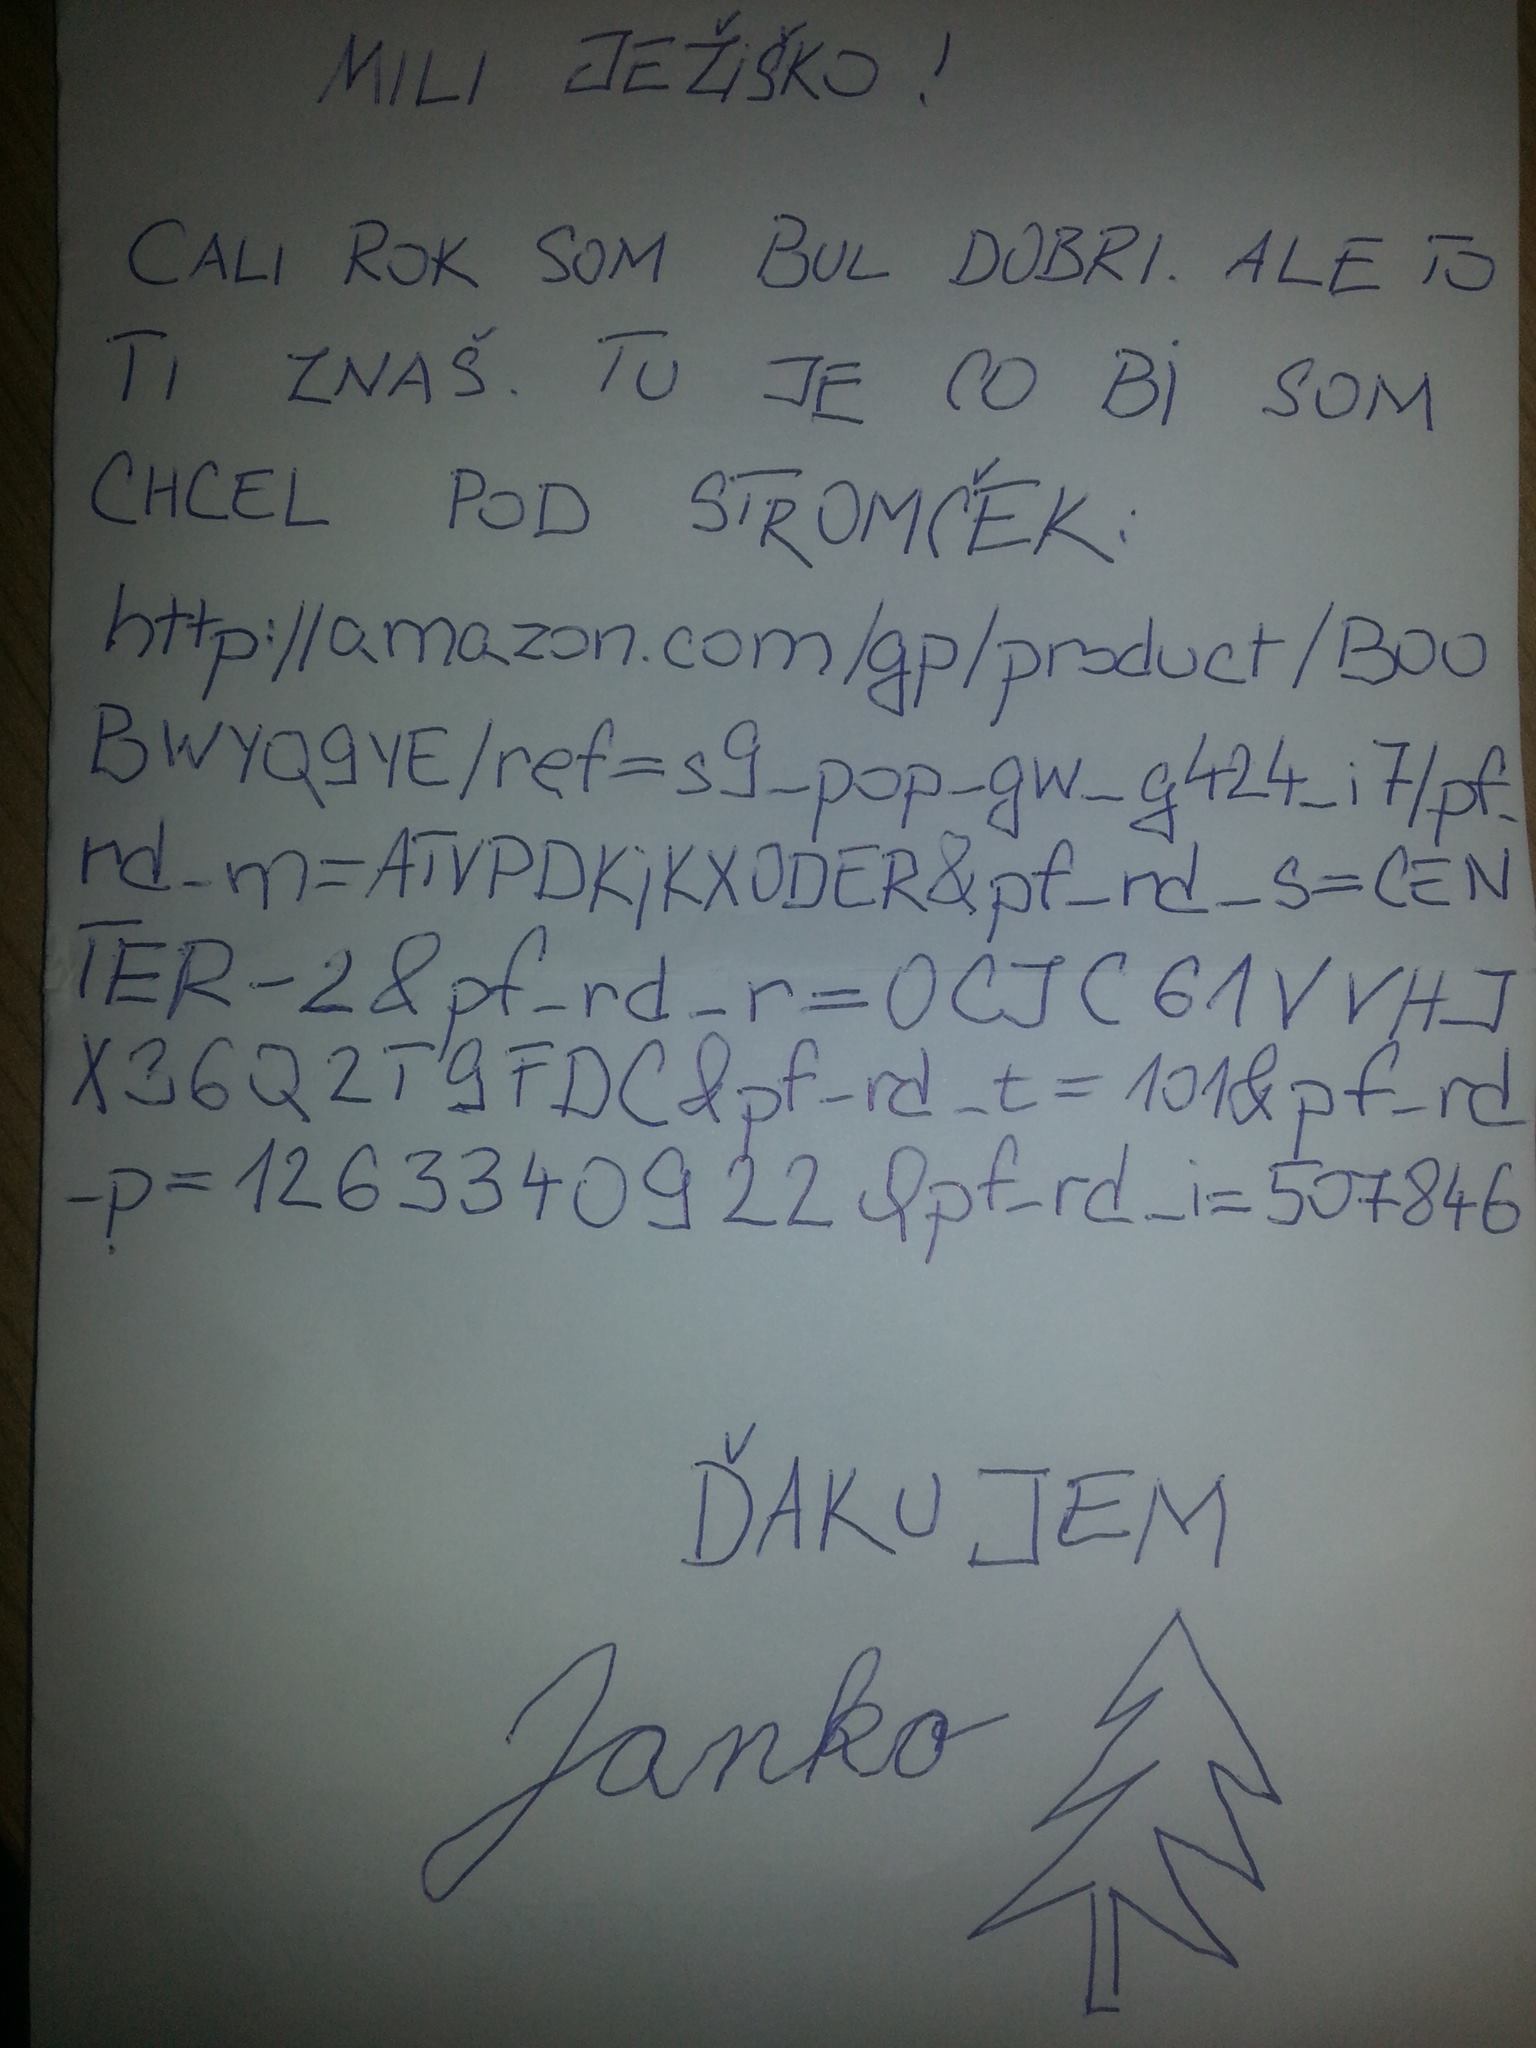 MILI JEŽIŠKO!
CALI ROK SOM BUL DOBRI. ALE TO
TI ZNAŠ. TU JE CO BI SOM
CHCEL POD STROMČEK:
http://amazon.com/gp/product/B00
BWYQ9YE/ref=s9_pop_gw_g424_i7/pf_
rd_m=ATVPDKjKX0DER&pf_rd_s=CEN
TER-2&pf_rd_r=0CJC61VVHJ
X36Q2T9FDC&pf_rd_t=101&pf_rd
_p=1263340922&pf_rd_i=507846
ĎAKUJEM
Janko